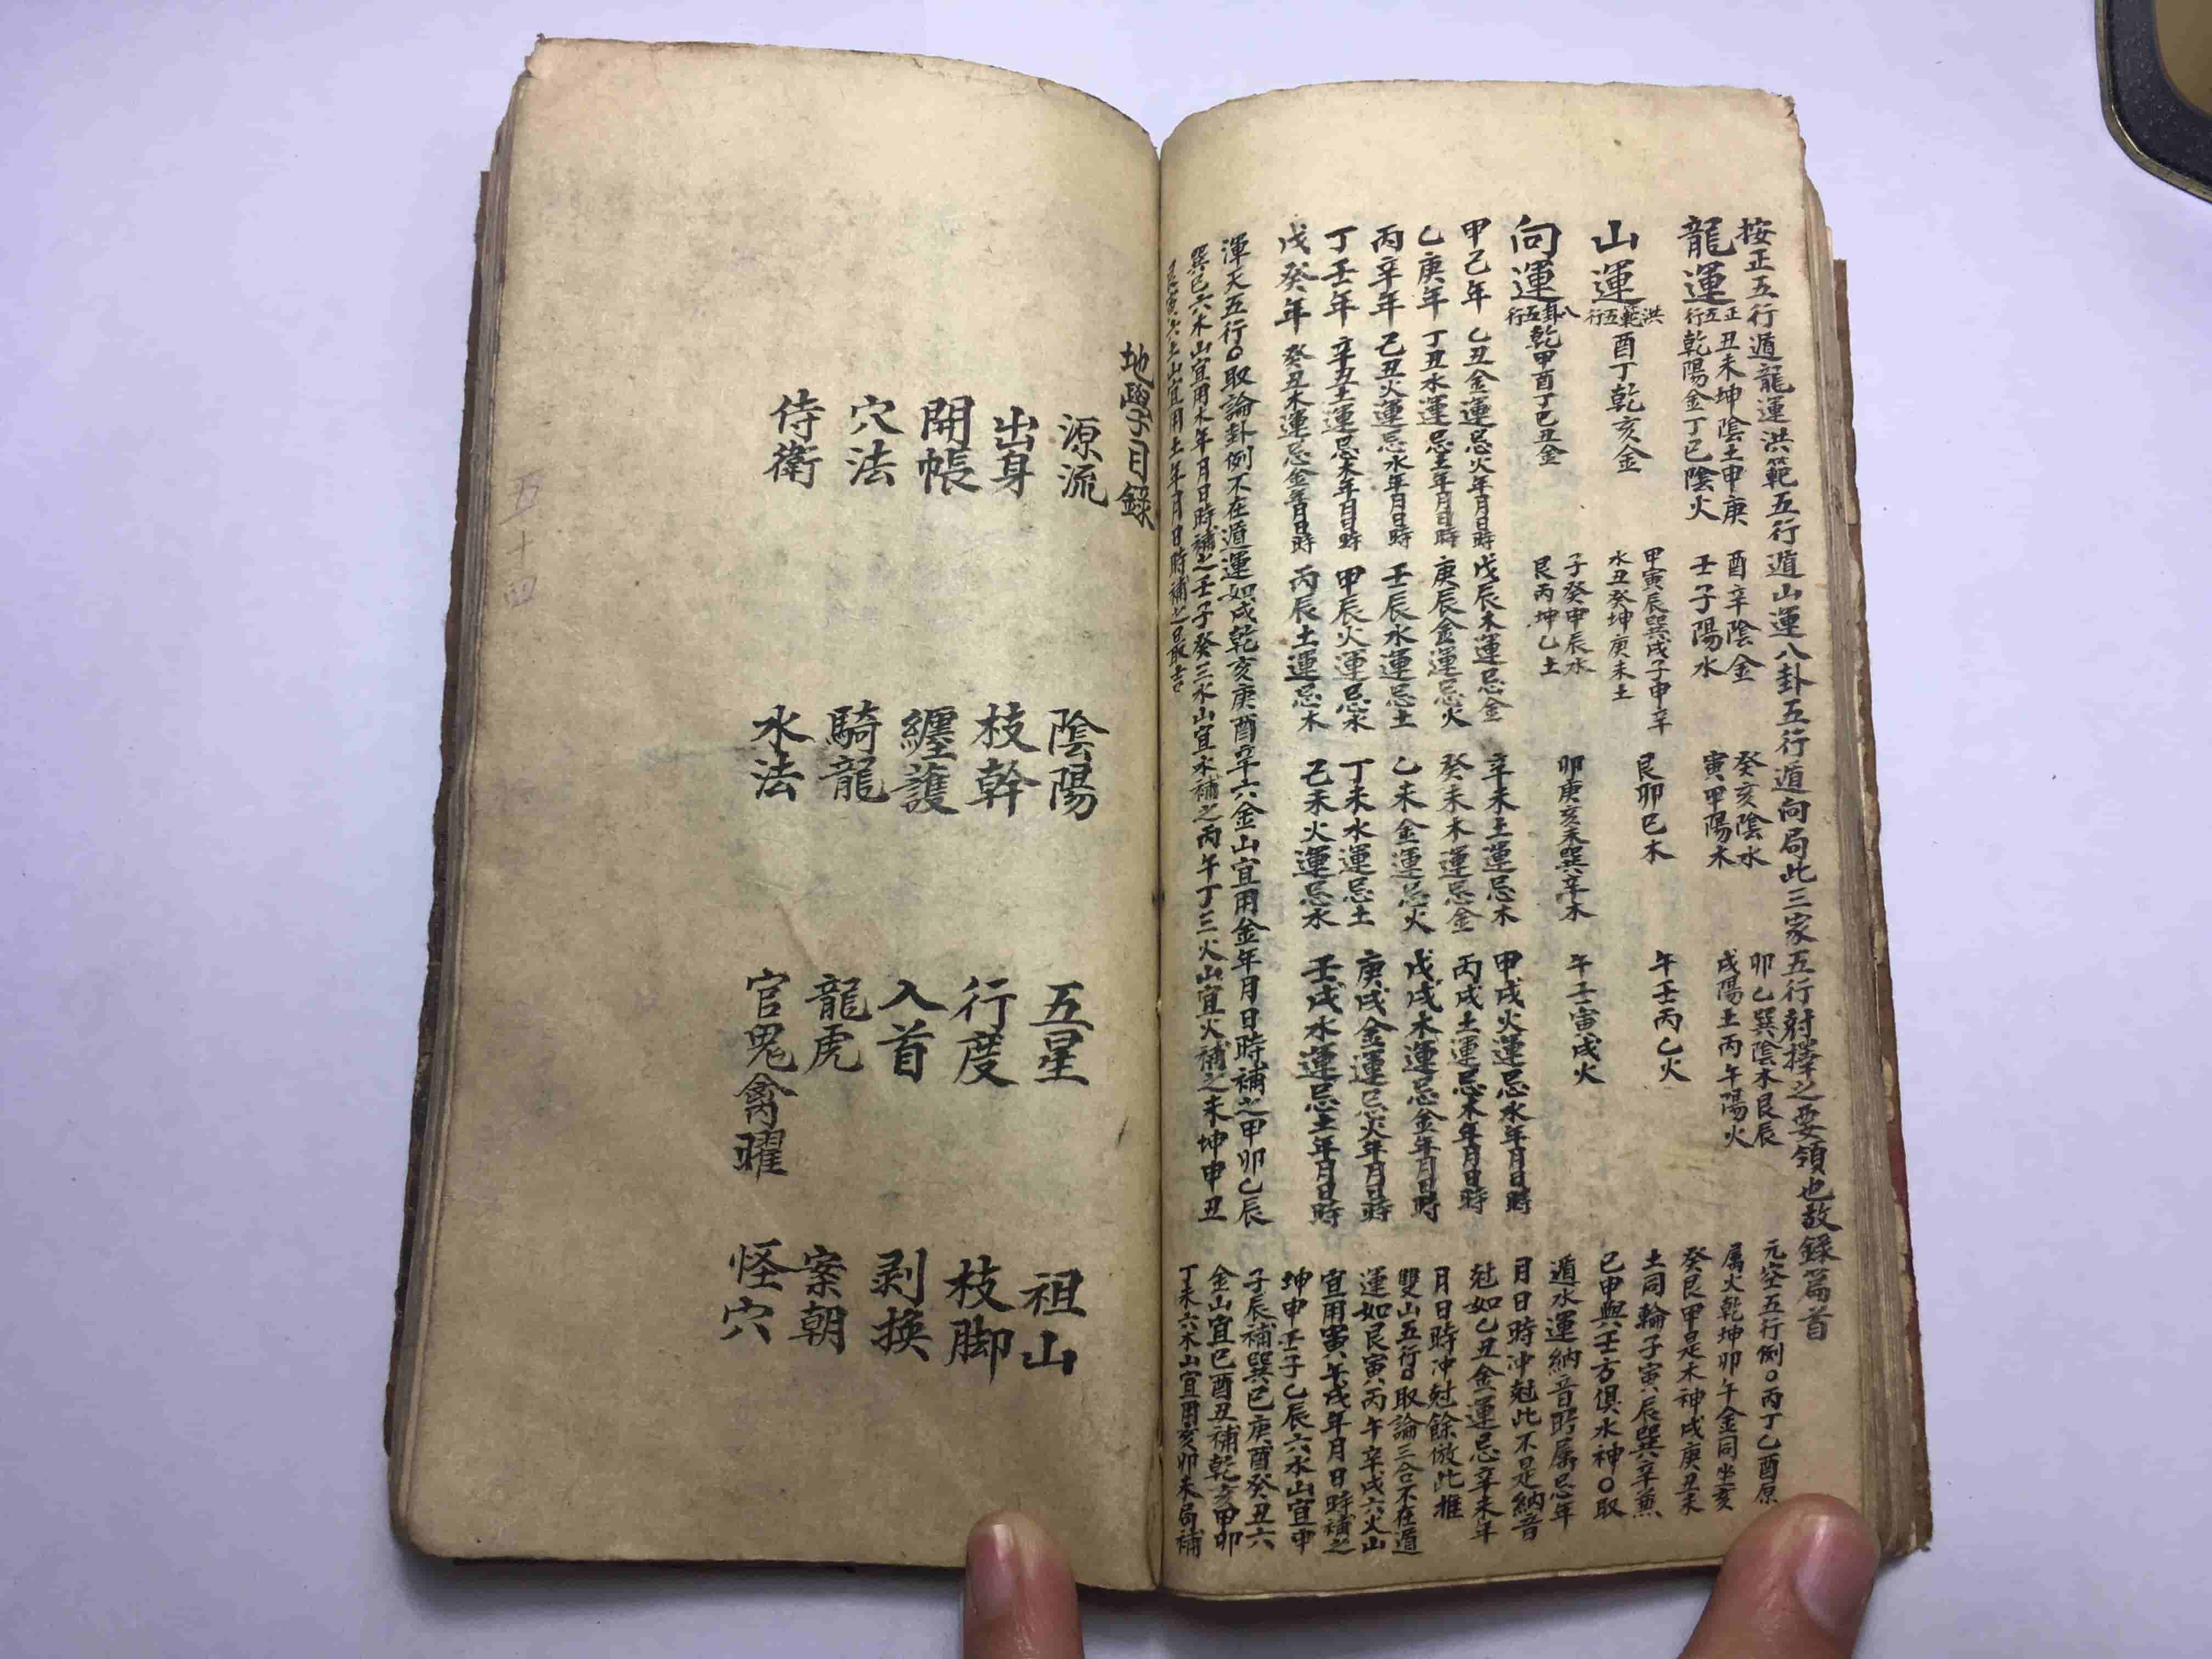 按正五行遁龍運洪範五行遁山運八卦五行遁向局此三家五行尅擇之要領也故錄篇首
龍運
正五行
丑未坤陰土申庚
乾陽金丁巳陰火
酉辛陰金
壬子陽水
癸亥陰水
寅甲陽木
卯乙巽陰木艮辰
戌陽土丙午陽火
山運
洪範五行
酉丁乾亥金
甲寅辰巽戌子申辛
水丑癸坤庚未土
艮卯巳木
午壬丙乙火
向運
八卦五行
乾甲酉丁巳丑金
子癸申辰水
艮丙坤乙土
卯庚亥未巽辛木
午壬寅戌火
甲己年 乙丑金運忌火年月日時 戊辰木運忌金 辛未土運忌木 甲戌火運忌水年月日時
乙庚年 丁丑水運忌土年月日時 庚辰金運忌火 癸未木運忌金 丙戌土運忌木年月日時
丙辛年 己丑火運忌水年月日時 壬辰水運忌土 乙未金運忌火 戊戌木運忌金年月日時
丁壬年 辛丑土運忌木年月日時 甲辰火運忌水 丁未水運忌土 庚戌金運忌火年月日時
戊癸年 癸丑木運忌金年月日時 丙辰土運忌木 己未火運忌水 壬戌水運忌土年月日時
元空五行例○丙丁乙酉原
属火乾坤卯午金同坐亥
癸艮甲是木神戌庚丑未
土同輪子寅辰巽辛兼
巳申與壬方俱水神○取
遁水運納音所属忌年
月日時冲尅此不是納音
尅如乙丑金運忌辛未年
月日時冲尅餘倣此推
雙山五行○取論三合不在遁
運如艮寅丙午辛戌六火山
宜用寅午戌年月日時補之
坤申壬子乙辰六水山宜申
子辰補巽巳庚酉癸丑六
金山宜巳酉丑補乾亥甲卯
丁未六木山宜用亥卯未局補
渾天五行○取論卦例不在遁運如戌乾亥庚酉辛六金山宜用金年月日時補之甲卯乙辰
巽巳六木山宜用木年月日時補之壬子癸三水山宜水補之丙午丁三火山宜火補之未坤申丑
艮寅六土山宜用土年月日時補之最吉
地學目錄
源流 陰陽 五星 祖山
出身 枝幹 行度 枝脚
開帳 纏護 入首 剥換
穴法 騎龍 龍虎 案朝
侍衛 水法 官鬼禽曜 怪穴
五十四